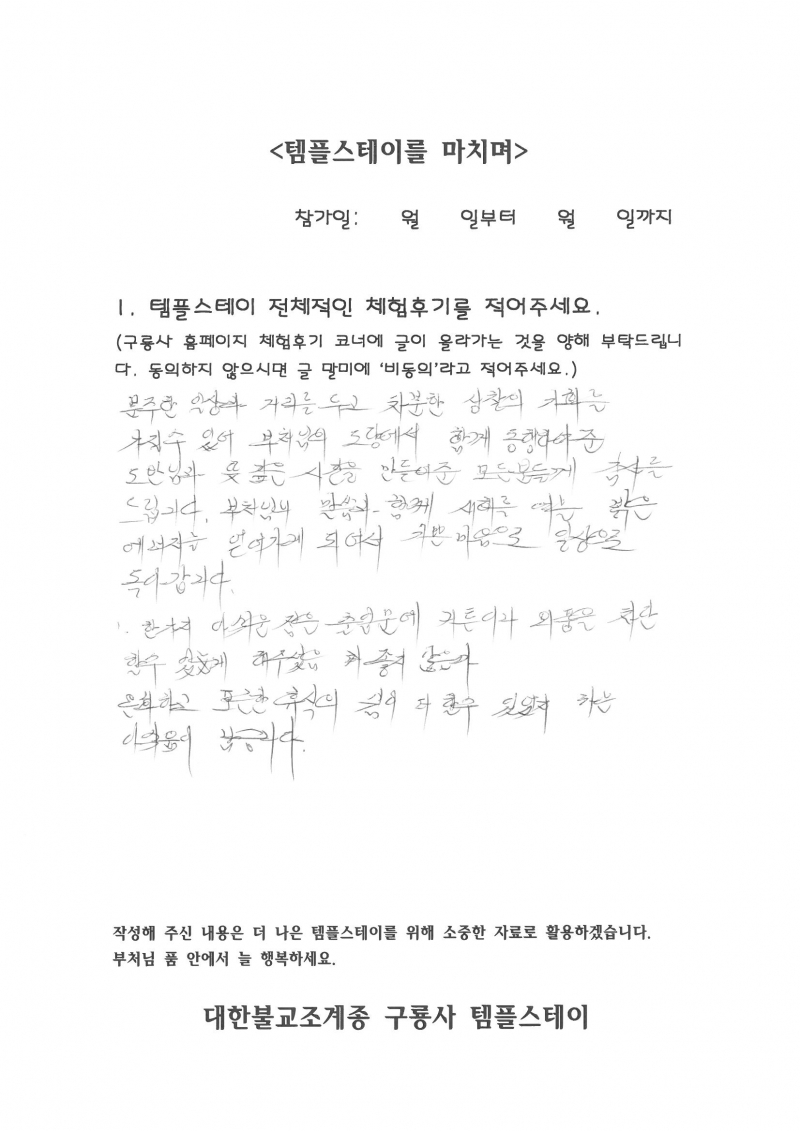 <템플스테이를 마치며>
참가일: 월 일부터 월 일까지
1. 템플스테이 전체적인 체험후기를 적어주세요.
(구룡사 홈페이지 체험후기 코너에 글이 올라가는 것을 양해 부탁드립니
다. 동의하지 않으시면 글 말미에 '비동의'라고 적어주세요.)
분주한 일상과 거리를 두고 차분한 성찰의 기회를
가질수 있어 부처님의 도량에서 함께 동행하여준
도반님과 뜻 깊은 시간을 만들어준 모든분들게 감사를
드립니다. 부처님의 말씀과 함께 새해를 여는 밝은
에너지를 얻어가게 되어서 기쁜 마음으로 일상으로
돌아갑니다.
한가지 아쉬운 점은 출입문에 커튼이라 외풍을 차단
할수 있게 해주셨음 더 좋지 않을까
온화하고 포근한 휴식의 쉼이 더 할수 있었지 하는
아쉬움이 남습니다.
작성해 주신 내용은 더 나은 템플스테이를 위해 소중한 자료로 활용하겠습니다.
부처님 품 안에서 늘 행복하세요.
대한불교조계종 구룡사 템플스테이